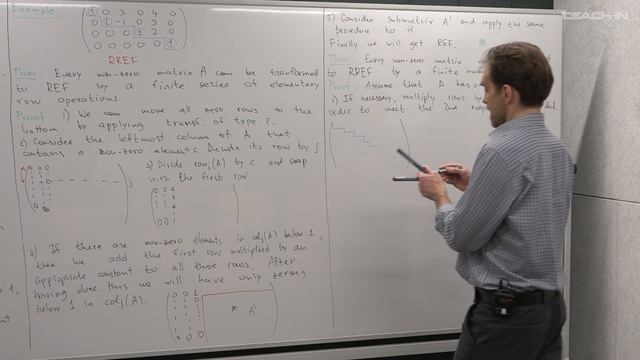 Example
0 3 0 4 0
0 1 -1 0 3 0
0 0 0 1 2 0
0 0 0 0 0 1
RREF
Thm: Every non-zero matrix A can be transformed
to REF by a finite series of elementary
row operations.
Proof: 1) We can move all zero rows to the
bottom by applying transf. of type 2.
2) Consider the leftmost column of A that
contains a non-zero element c. Denote its row by j
3) Divide row_j(A) by c and swap
with the first row
4) If there are non-zero elements in col_j(A) below 1,
then we add the first row multiplied by an
appropriate constant to all those rows. After
having done this we will have only zeros
below 1 in col_j(A).
* A'
5) Consider submatrix A' and apply the same
procedure to it.
Finally we will get REF.
Thm: Every non-zero matrix
to RREF by a finite
Proof: Assume that A has
1) If necessary, multiply rows by
order to meet the 2nd
TEACH-IN